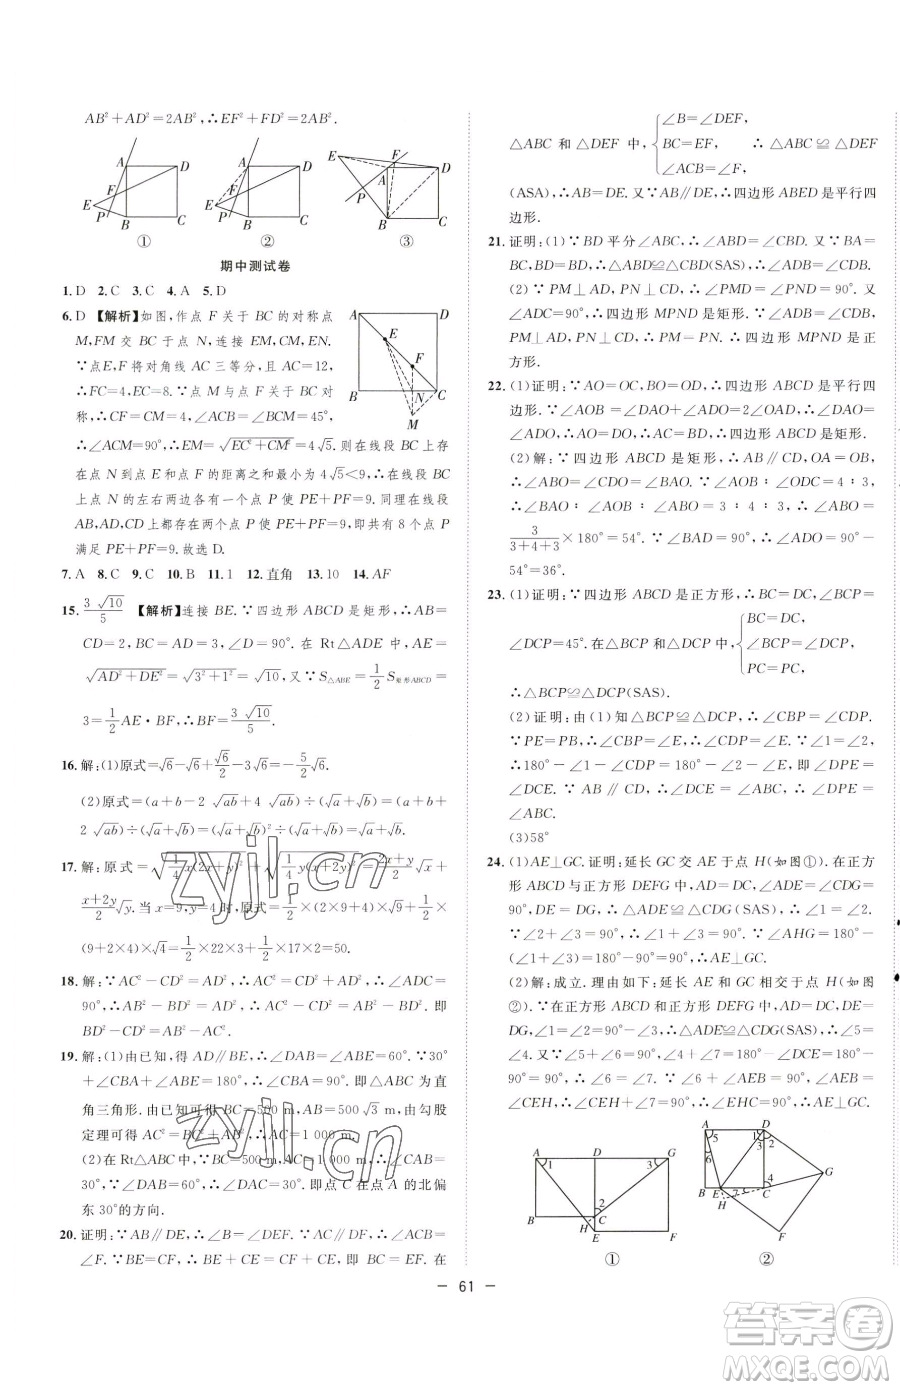 AB²+AD²=2AB²,∴EF²+FD²=2AB².
A D F E P B C ①
A D F E P B C ②
E F A D P B C ③
期中测试卷
1. D 2. C 3. C 4. A 5. D
6. D 【解析】如图,作点 F 关于 BC 的对称点
M,FM 交 BC 于点 N,连接 EM,CM.
∵点 E,F 将对角线 AC 三等分,且 AC=12,
∴FC=4,EC=8.∵点 M 与点 F 关于 BC 对
称,∴CF=CM=4,∠ACB=∠BCM=45°,
∴∠ACM=90°,∴EM=√(EC²+CM²)=4√5.则在线段 BC 上存
在点 N 到点 E 和点 F 的距离之和最小为 4√5<9,∴在线段 BC
上点 N 的左右两边各有一个点 P 使 PE+PF=9.同理在线段
AB,AD,CD 上都存在两个点 P 使 PE+PF=9,即共有 8 个点 P
满足 PE+PF=9.故选 D.
A D E F B N C M
7. A 8. C 9. C 10. B 11. 1 12. 直角 13. 10 14. AF
15. 3√10/5 【解析】连接 BE.∵四边形 ABCD 是矩形,∴AB=
CD=2,BC=AD=3,∠D=90°.在 Rt△ADE 中,AE=
√(AD²+DE²)=√(3²+1²)=√10,又∵S△ABE=1/2 S矩形ABCD=
3=1/2 AE·BF,∴BF=3√10/5.
16. 解:(1)原式=√6-√6+√6/2-3√6=-5/2√6.
(2)原式=(a+b-2√ab+4√ab)÷(√a+√b)=(a+b+
2√ab)÷(√a+√b)=(√a+√b)²÷(√a+√b)=√a+√b.
17. 解:原式=√(1/4 x(2x+y)²)+√(1/4 y(x+2y)²)=(2x+y)/2 √x+
(x+2y)/2 √y.当 x=9,y=4 时,原式=1/2×(2×9+4)×√9+1/2×
(9+2×4)×√4=1/2×22×3+1/2×17×2=50.
18. 解:∵AC²-CD²=AD²,∴AC²=CD²+AD²,∴∠ADC=
90°,∴AB²-BD²=AD²,∴AC²-CD²=AB²-BD².即
BD²-CD²=AB²-AC².
19. 解:(1)由已知,得 AD∥BE,∴∠DAB=∠ABE=60°.∵30°
+∠CBA+∠ABE=180°,∴∠CBA=90°.即△ABC 为直
角三角形.由已知可得 BC=500 m,AB=500√3 m,由勾股
定理可得 AC²=BC²+AB²,∴AC=1 000 m.
(2)在 Rt△ABC 中,∵BC=500 m,AC=1 000 m,∴∠CAB
=30°.∵∠DAB=60°,∴∠DAC=30°.即点 C 在点 A 的北偏
东 30°的方向.
20. 证明:∵AB∥DE,∴∠B=∠DEF.∵AC∥DF,∴∠ACB=
∠F.∵BE=CF,∴BE+CE=CF+CE,即 BC=EF.在
△ABC 和△DEF 中, {∠B=∠DEF, BC=EF, ∠ACB=∠F, ∴△ABC≌△DEF
(ASA),∴AB=DE.又∵AB∥DE,∴四边形 ABED 是平行四
边形.
21. 证明:(1)∵BD 平分∠ABC,∴∠ABD=∠CBD.又∵BA=
BC,BD=BD,∴△ABD≌△CBD(SAS),∴∠ADB=∠CDB.
(2)∵PM⊥AD,PN⊥CD,∴∠PMD=∠PND=90°.又∵
∠ADC=90°,∴四边形 MPND 是矩形.∵∠ADB=∠CDB,
PM⊥AD,PN⊥CD,∴PM=PN.∴四边形 MPND 是正
方形.
22. (1)证明:∵AO=OC,BO=OD,∴四边形 ABCD 是平行四
边形.∵∠AOB=∠DAO+∠ADO=2∠OAD,∴∠DAO=
∠ADO,∴AO=DO,∴AC=BD,∴四边形 ABCD 是矩形.
(2)解:∵四边形 ABCD 是矩形,∴AB∥CD,OA=OB,
∴∠ABO=∠BAO=∠CDO.∵∠AOB∶∠ODC=4∶3,
∴∠BAO∶∠AOB∶∠ABO=3∶4∶3,∴∠ABO=
3/(3+4+3)×180°=54°.∵∠BAD=90°,∴∠ADO=90°-
54°=36°.
23. (1)证明:∵四边形 ABCD 是正方形,∴BC=DC,∠BCP=
∠DCP=45°.在△BCP 和△DCP 中, {BC=DC, ∠BCP=∠DCP, PC=PC,
∴△BCP≌△DCP(SAS).
(2)证明:由(1)知△BCP≌△DCP,∴∠CBP=∠CDP.
∵PE=PB,∴∠CBP=∠E,∴∠CDP=∠E.∵∠1=∠2,∴
180°-∠1-∠CDP=180°-∠2-∠E,即∠DPE=
∠DCE.∵AB∥CD,∴∠DCE=∠ABC,∴∠DPE=
∠ABC.
(3)58°
24. (1)AE⊥GC.证明:延长 GC 交 AE 于点 H(如图①).在正方
形 ABCD 与正方形 DEFG 中,AD=DC,∠ADE=∠CDG=
90°,DE=DG,∴△ADE≌△CDG(SAS),∴∠1=∠2.
∵∠2+∠3=90°,∴∠1+∠3=90°,∴∠AHG=180°-(∠1
+∠3)=180°-90°=90°,∴AE⊥GC.
(2)解:成立.理由如下:延长 AE 和 GC 相交于点 H(如图
②).∵在正方形 ABCD 和正方形 DEFG 中,AD=DC,DE=
DG,∠ADC=∠DCB=∠B=∠BAD=∠EDG=90°,∴∠1
=∠2=90°-∠3,∴△ADE≌△CDG(SAS),∴∠5=
∠4.又∵∠5+∠6=90°,∠4+∠7=180°-∠DCE=180°-
90°=90°,∴∠6=∠7.∵∠6+∠AEB=90°,∠AEB=
∠CEH,∴∠CEH+∠7=90°,∴∠EHC=90°,∴AE⊥GC.
A D G 1 3 2 B C H E F ①
A D 5 1 2 3 6 4 G B E 7 C H F ②
— 61 —
zyjl.cn
zyjl.cn
答案圈
MXQE.COM